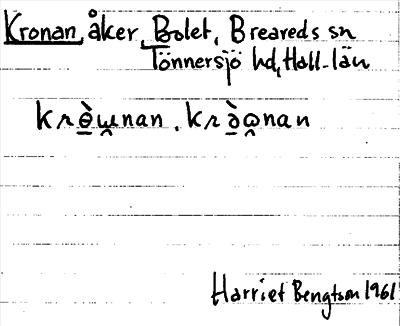 Kronan, åker, Bolet, Breareds sn
Tönnersjö hd, Hall. län
krɵ̠̀ɯ̯nan. krɔ̠̀o̯nan
Harriet Bengtson 1961